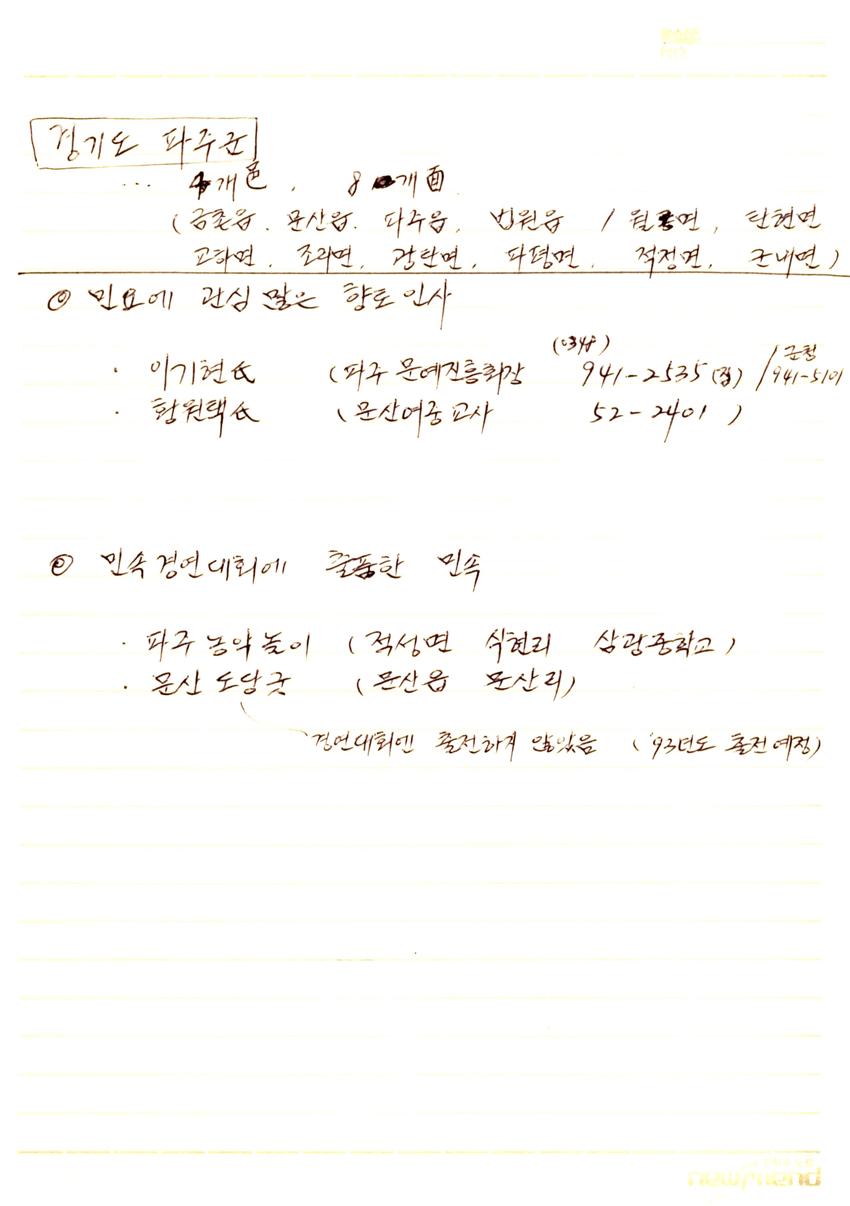 경기도 파주군
... 4개邑, 8개面
(금촌읍. 문산읍. 파주읍, 법원읍 / 월롱면, 탄현면
교하면, 조리면, 광탄면, 파평면, 적성면, 군내면)
◎ 민요에 관심 많은 향토인사
· 이기현氏 (파주 문예진흥회장 (0348) 941-2535(집) / 군청 941-5101
· 황원택氏 (문산여중교사 52-2401 )
◎ 민속경연대회에 출품한 민속
· 파주 농악놀이 (적성면 식현리 삼광중학교)
· 문산 도당굿 (문산읍 문산리)
경연대회엔 출전하지 않았음 ('93년도 출전예정)
newfriend